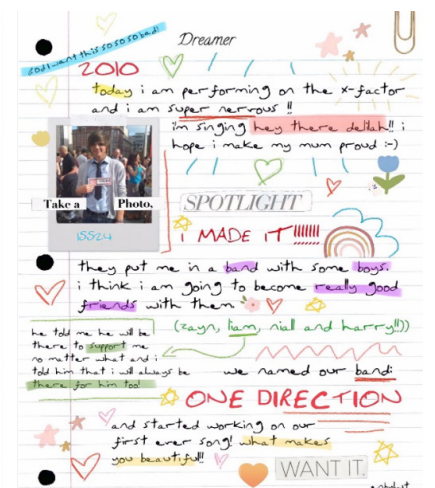 god i want this so so so bad!
Dreamer
2010
today i am performing on the x-factor
and i am super nervous !!
i'm singing hey there delilah!! i
hope i make my mum proud :-)
Take a Photo,
15524
SPOTLIGHT
i MADE IT!!!!!!!
they put me in a band with some boys.
i think i am going to become really good
friends with them
(zayn, liam, niall and harry!!)
he told me he will be
there to support me
no matter what and i
told him that i will always be
there for him too!
we named our band:
ONE DIRECTION
and started working on our
first ever song! what makes
you beautiful!!
WANT IT.